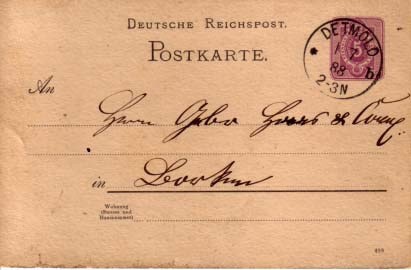 DEUTSCHE REICHSPOST.
POSTKARTE.
DETMOLD
88
b
2-3N
5
An
Herrn Gebr Haas & Comp
in
Wohnung
(Strasse und
Hausnummer)